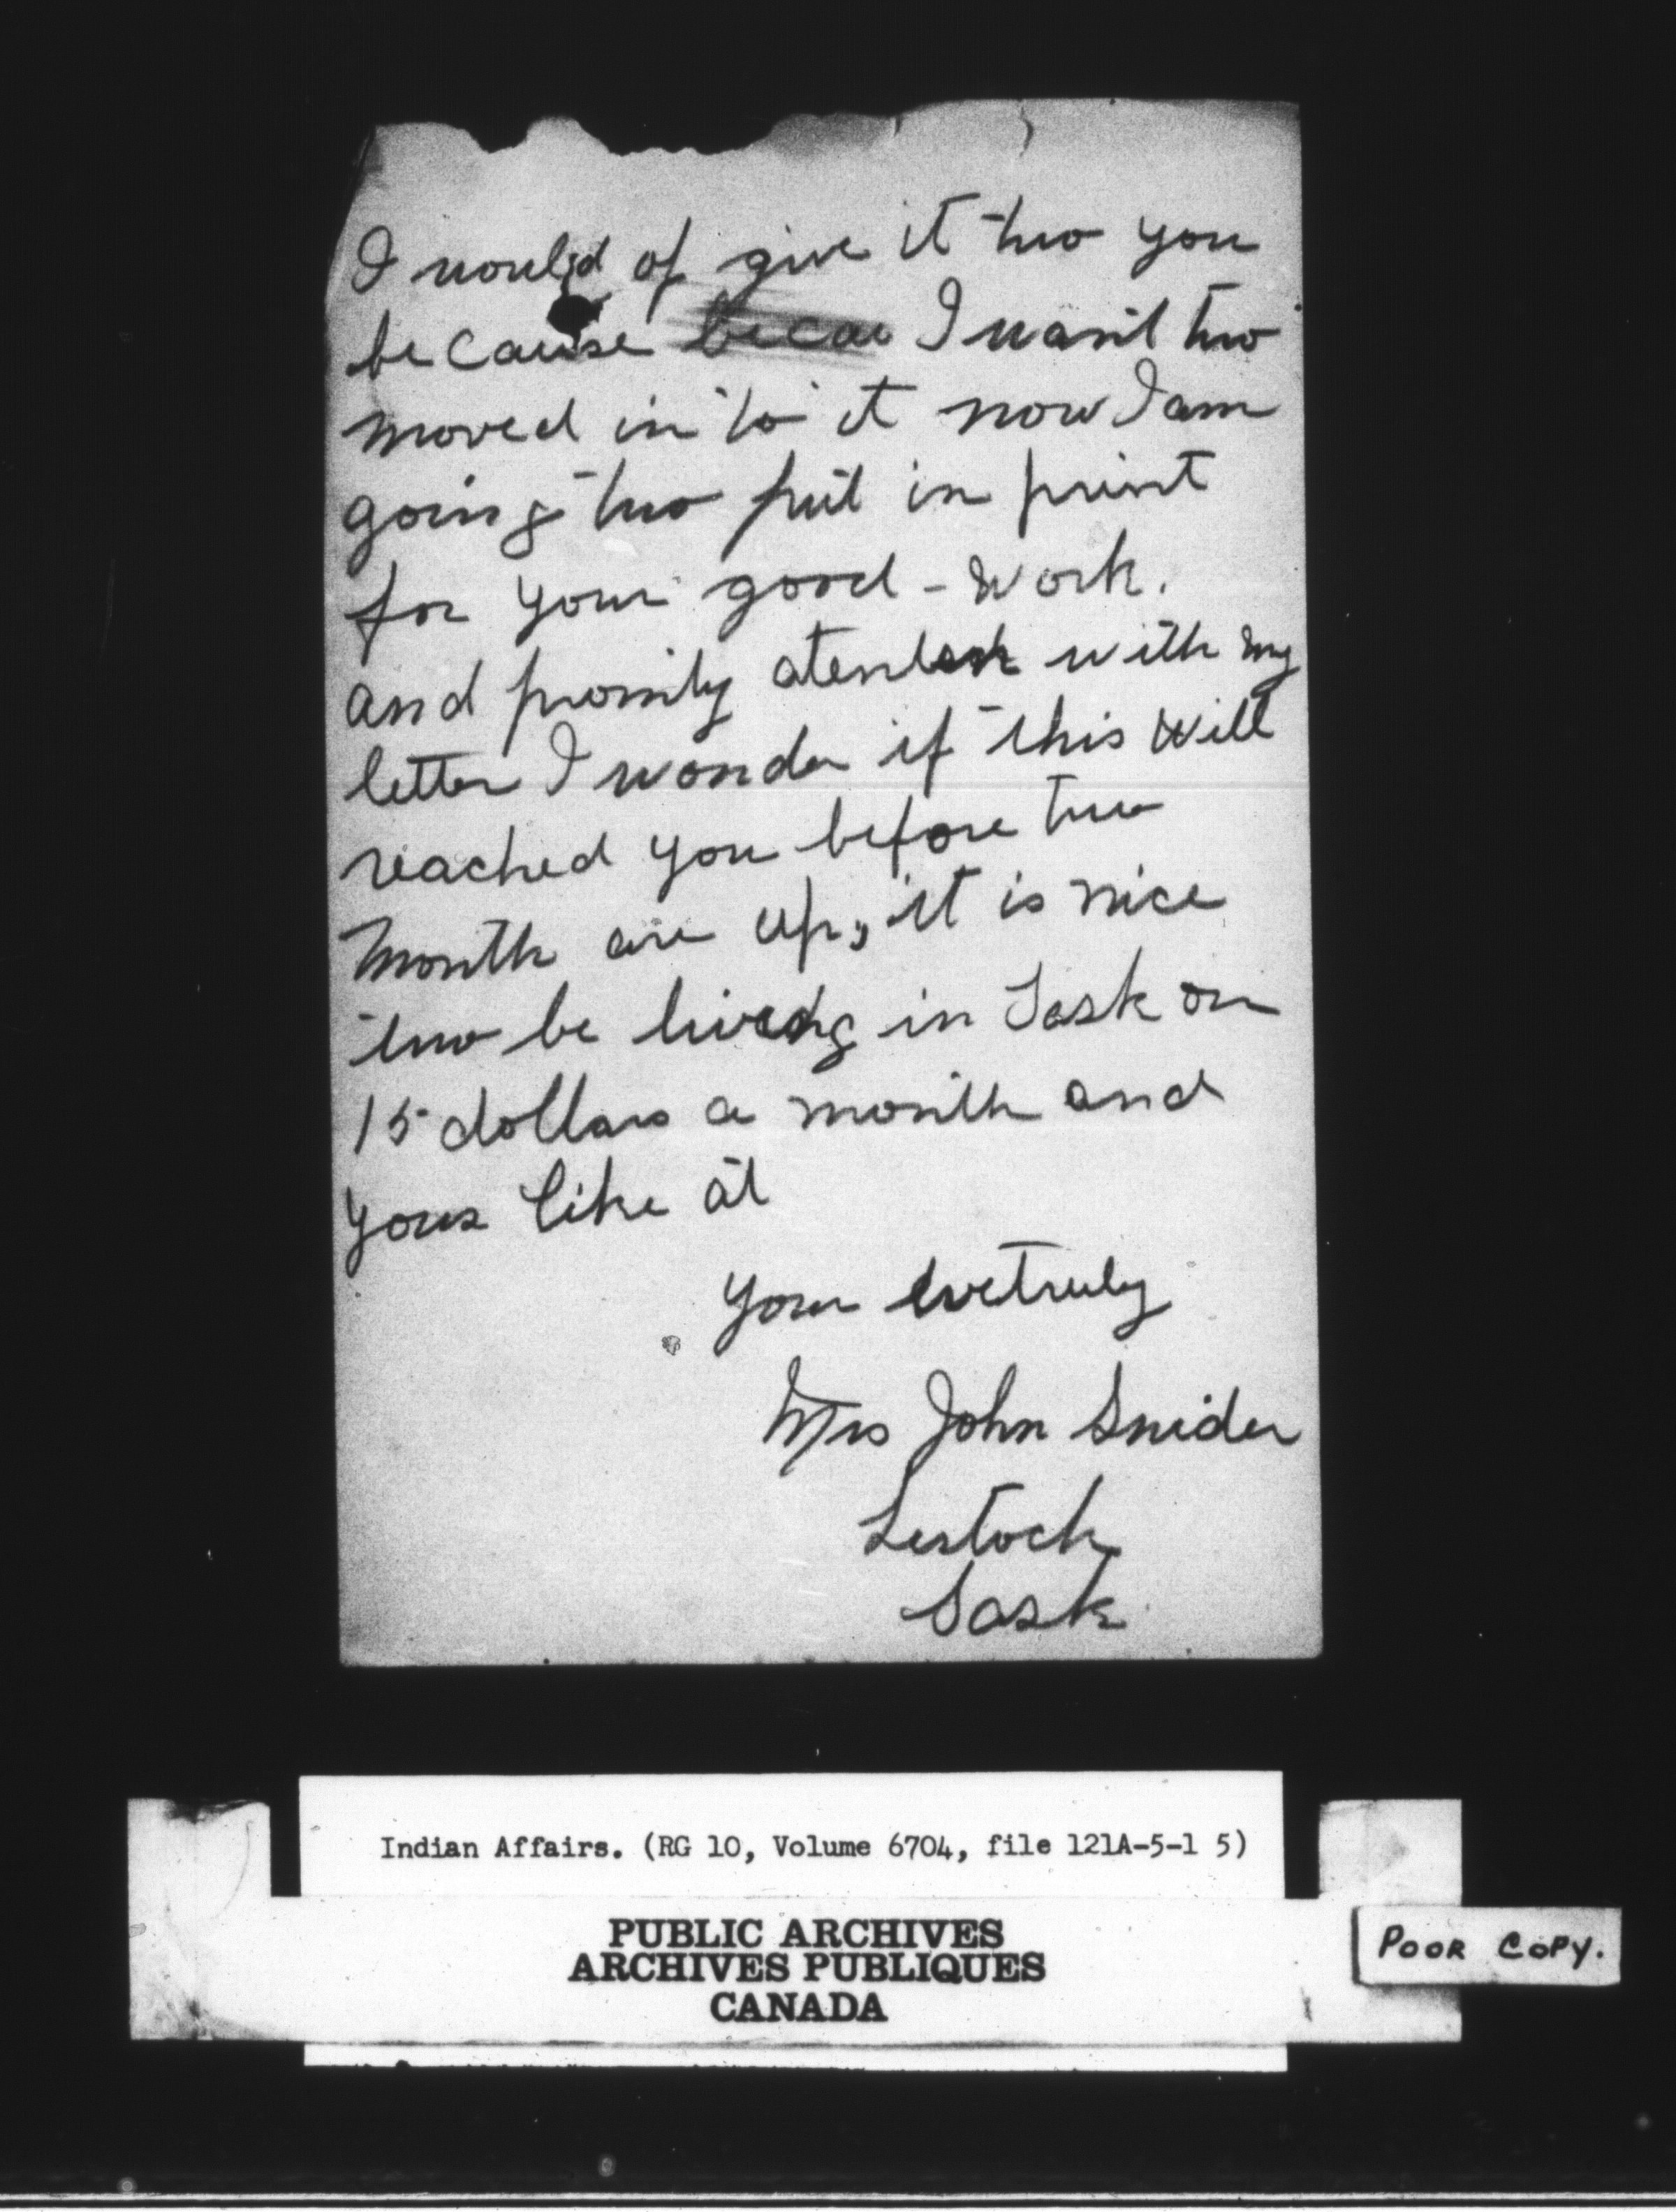 I would of give it two you
because becau I want two
moved in to it now I am
going two put in print
for your good - work.
and promily atenten with my
letter I wonder if this will
reached you before two
month are up, it is nice
two be living in Sask on
15 dollars a month and
your like at
your evetruly
Mrs John Snider
Lestock
Sask
Indian Affairs. (RG 10, Volume 6704, file 121A-5-1 5)
PUBLIC ARCHIVES
ARCHIVES PUBLIQUES
CANADA
POOR COPY.